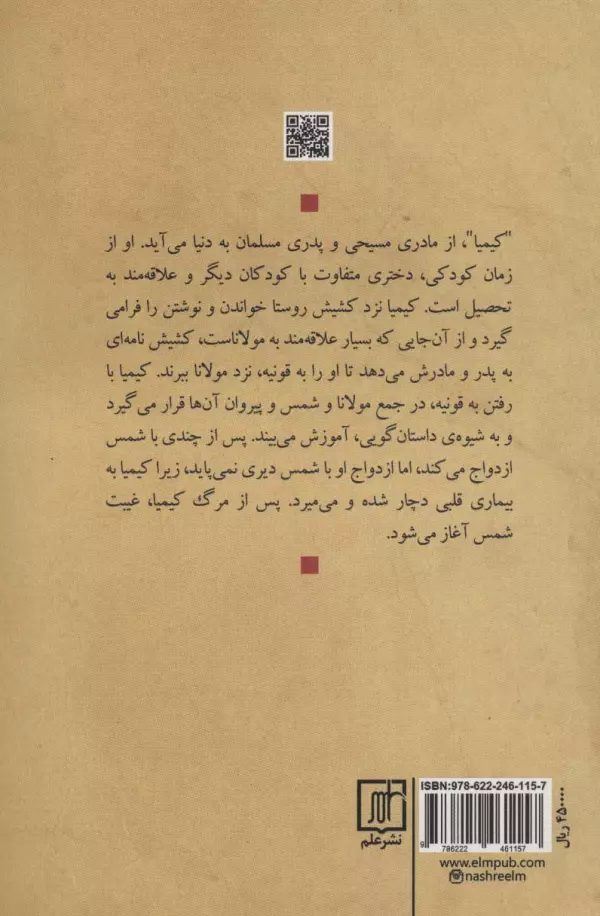 "کیمیا"، از مادری مسیحی و پدری مسلمان به دنیا می‌آید. او از
زمان کودکی، دختری متفاوت با کودکان دیگر و علاقه‌مند به
تحصیل است. کیمیا نزد کشیش روستا خواندن و نوشتن را فرامی
گیرد و از آن‌جایی که بسیار علاقه‌مند به مولاناست، کشیش نامه‌ای
به پدر و مادرش می‌دهد تا او را به قونیه، نزد مولانا ببرند. کیمیا با
رفتن به قونیه، در جمع مولانا و شمس و پیروان آن‌ها قرار می‌گیرد
و به شیوه‌ی داستان‌گویی، آموزش می‌بیند. پس از چندی با شمس
ازدواج می‌کند، اما ازدواج او با شمس دیری نمی‌پاید، زیرا کیمیا به
بیماری قلبی دچار شده و می‌میرد. پس از مرگ کیمیا، غیبت
شمس آغاز می‌شود.
ISBN:978-622-246-115-7
9 786222 461157
۴۵۰۰۰۰ ریال
نشر علم
www.elmpub.com
nashreelm